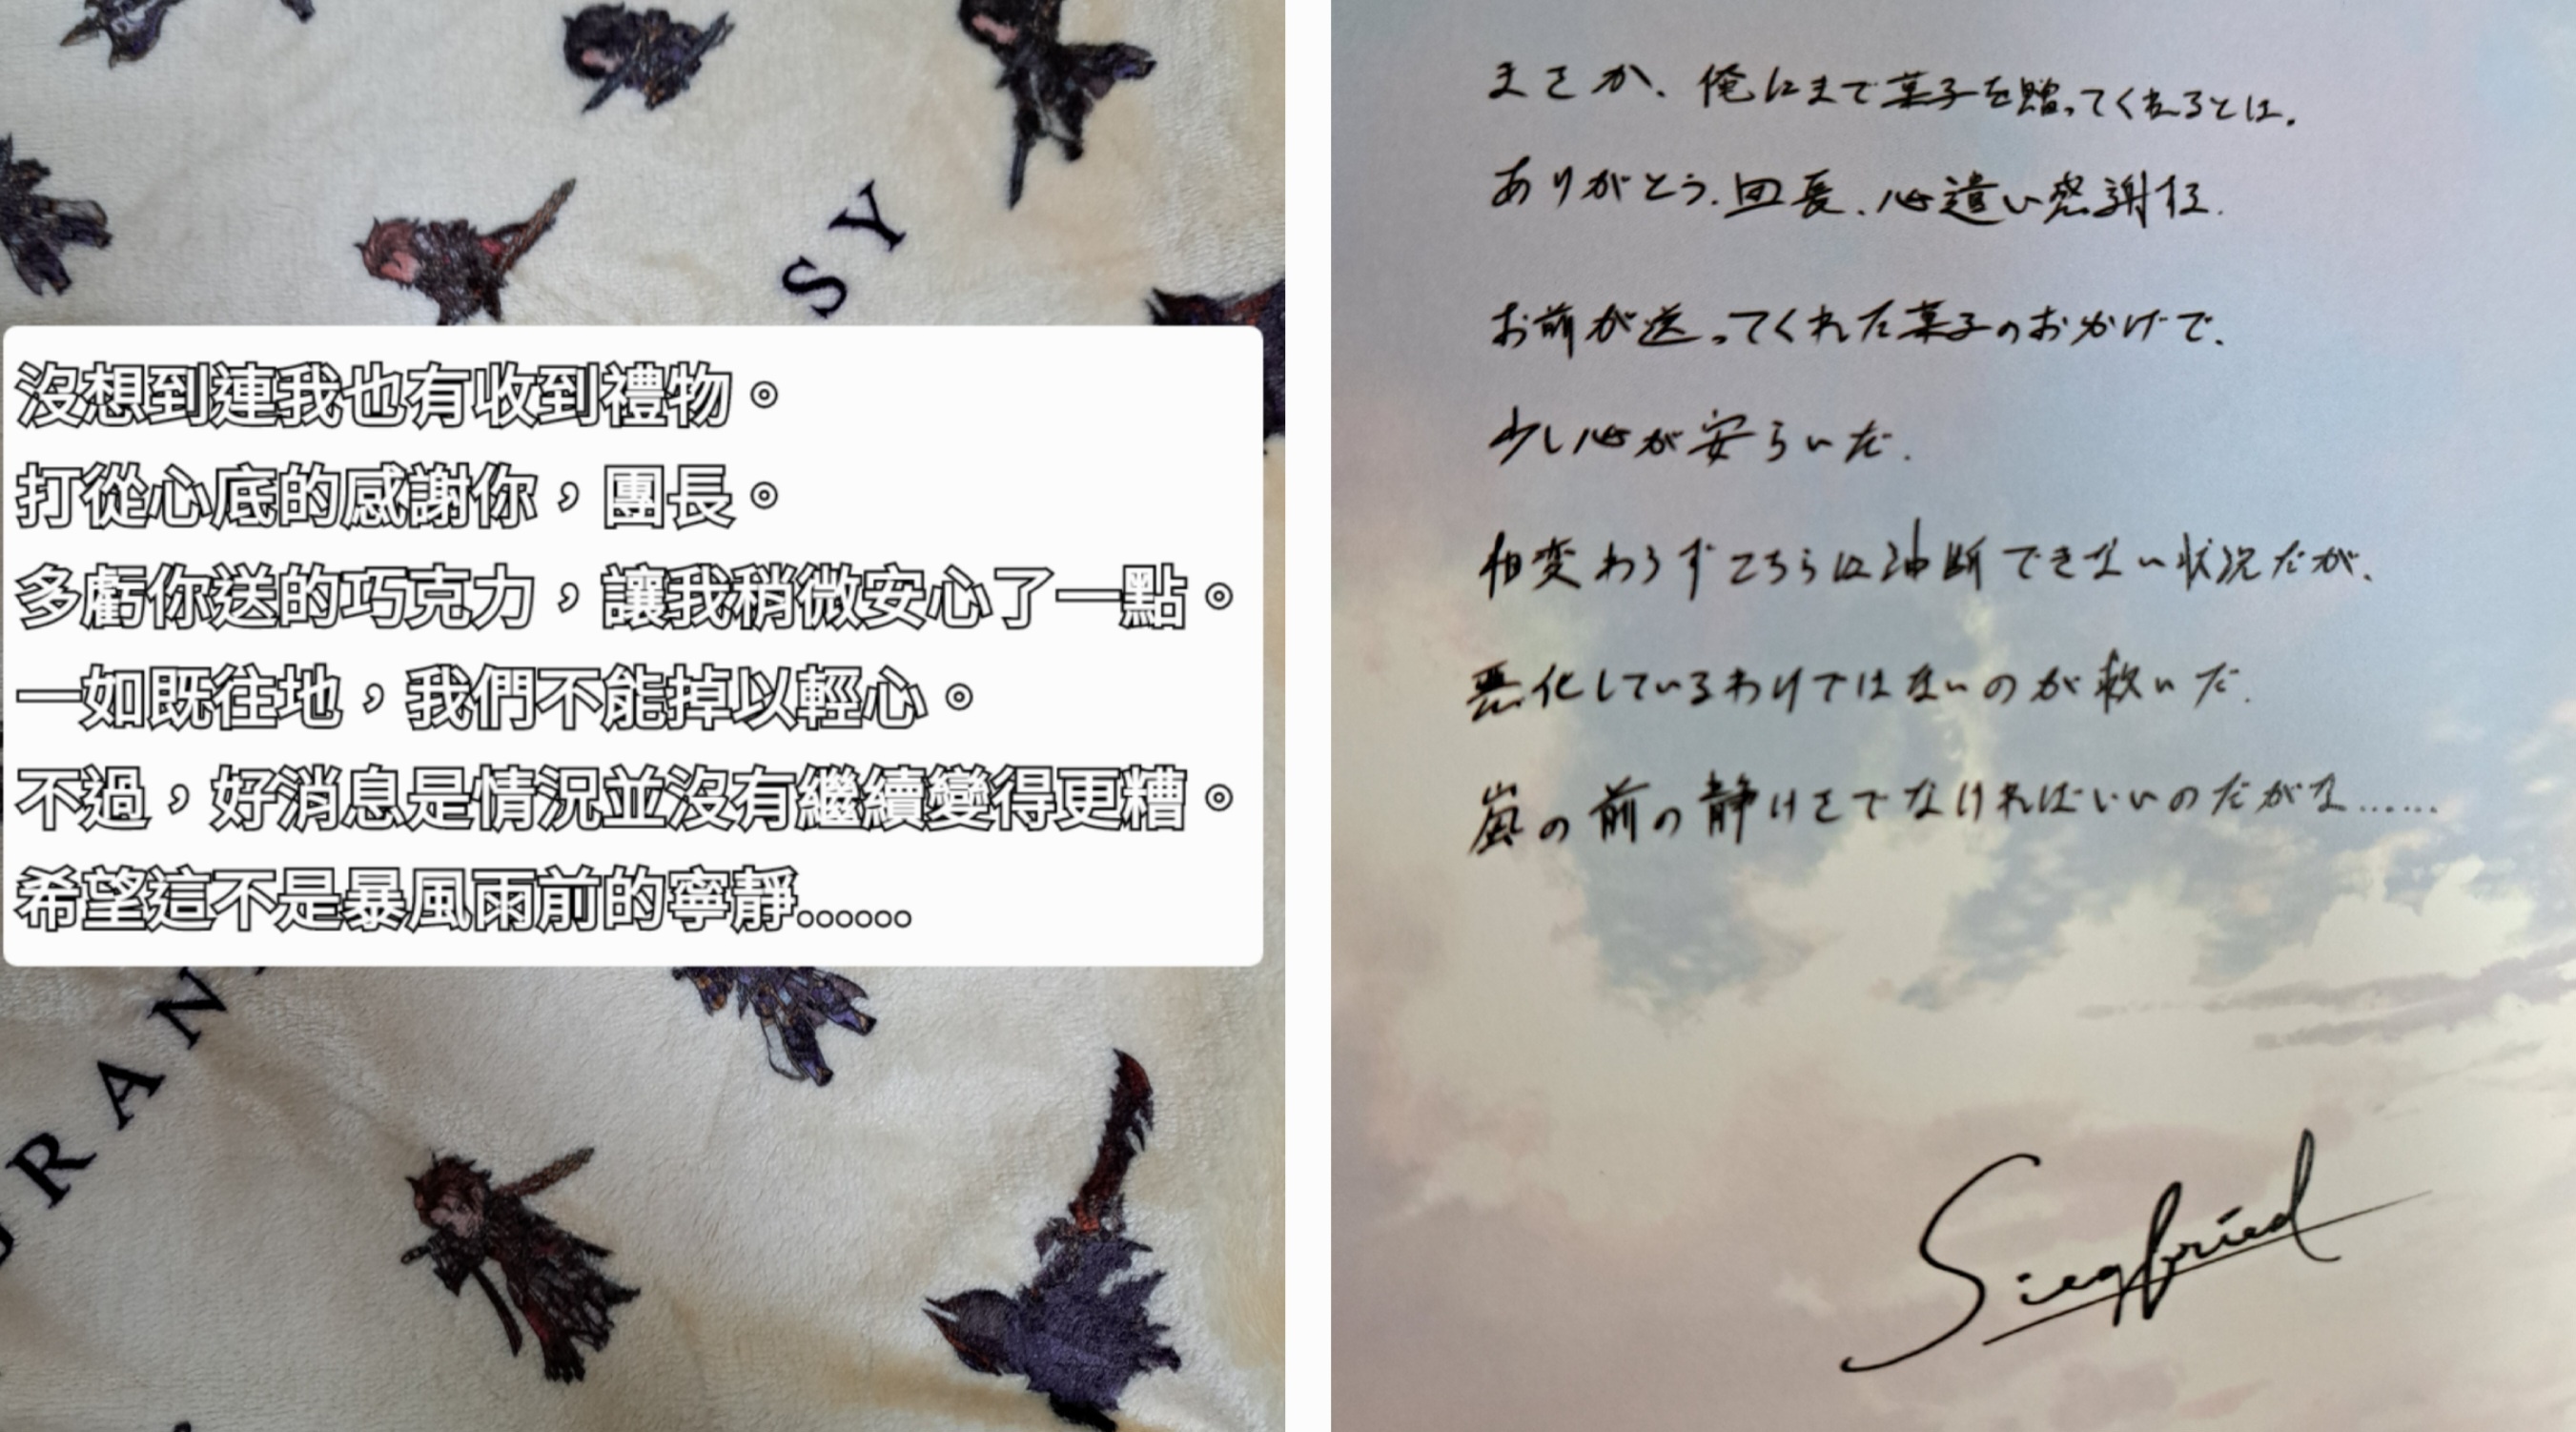 SY
沒想到連我也有收到禮物。
打從心底的感謝你，團長。
多虧你送的巧克力，讓我稍微安心了一點。
一如既往地，我們不能掉以輕心。
不過，好消息是情況並沒有繼續變得更糟。
希望這不是暴風雨前的寧靜......
GRAN
まさか、俺にまで菓子を贈ってくれるとは。
ありがとう、団長。心遣い感謝する。
お前が送ってくれた菓子のおかげで、
少し心が安らいだ。
相変わらずこちらは油断できない状況だが、
悪化しているわけではないのが救いだ。
嵐の前の静けさでなければいいのだがな……
Siegfried